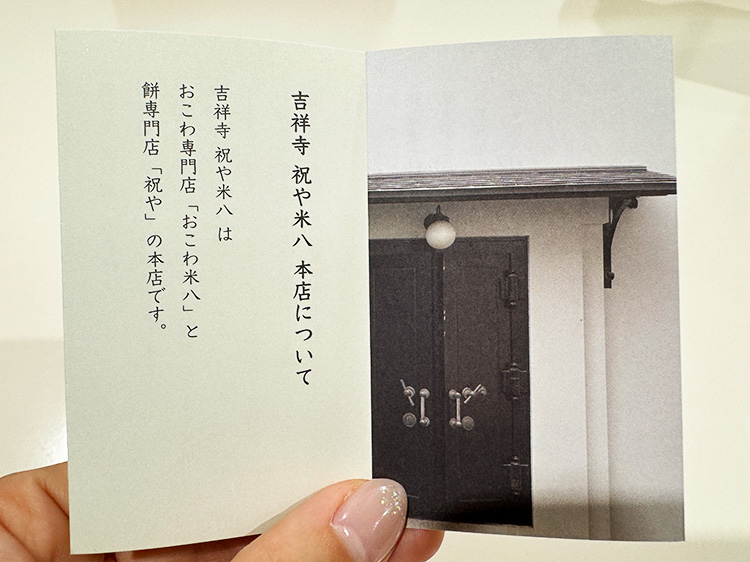 吉祥寺 祝や米八 本店について
吉祥寺 祝や米八 は
おこわ専門店「おこわ米八」と
餅専門店「祝や」の本店です。